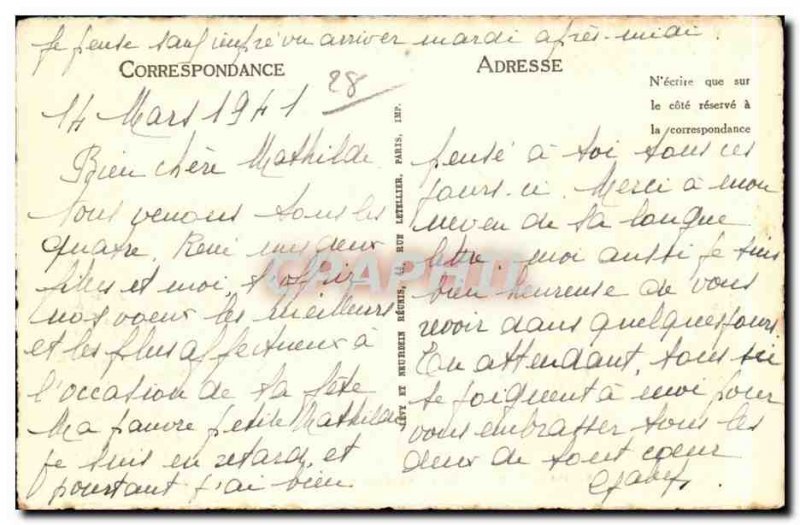 Je pense sauf imprévu arriver mardi après-midi.
CORRESPONDANCE
ADRESSE
28
N'écrire que sur
le côté réservé à
la correspondance
14 Mars 1941
Bien chère Mathilde
Nous venons tous les
quatre, René mes deux
filles et moi, t'offrir
nos voeux les meilleurs
et les plus affectueux à
l'occasion de ta fête
Ma pauvre petite Mathilde
je suis en retard, et
pourtant j'ai bien
LÉVY ET NEURDEIN RÉUNIS, 44, RUE LETELLIER, PARIS, IMP.
pensé à toi tous ces
jours-ci. Merci à mon
neveu de sa longue
lettre, moi aussi je suis
bien heureuse de vous
revoir dans quelques jours
En attendant, tous ici
se joignent à moi pour
vous embrasser tous les
deux de tout coeur